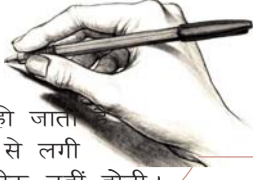 हो जाता
से लगी
नहीं होती।